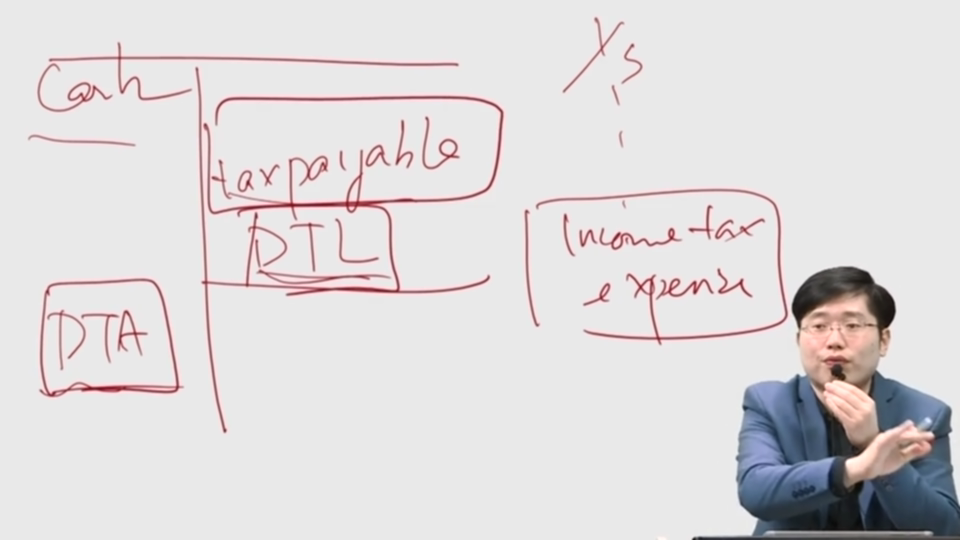 Cash
tax payable
DTL
DTA
I/S
Income tax
expense